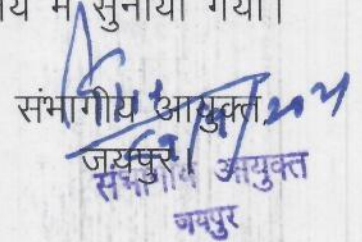 य में सुनाया गया।
संभागीय आयुक्त,
जयपुर।
संभागीय आयुक्त
जयपुर